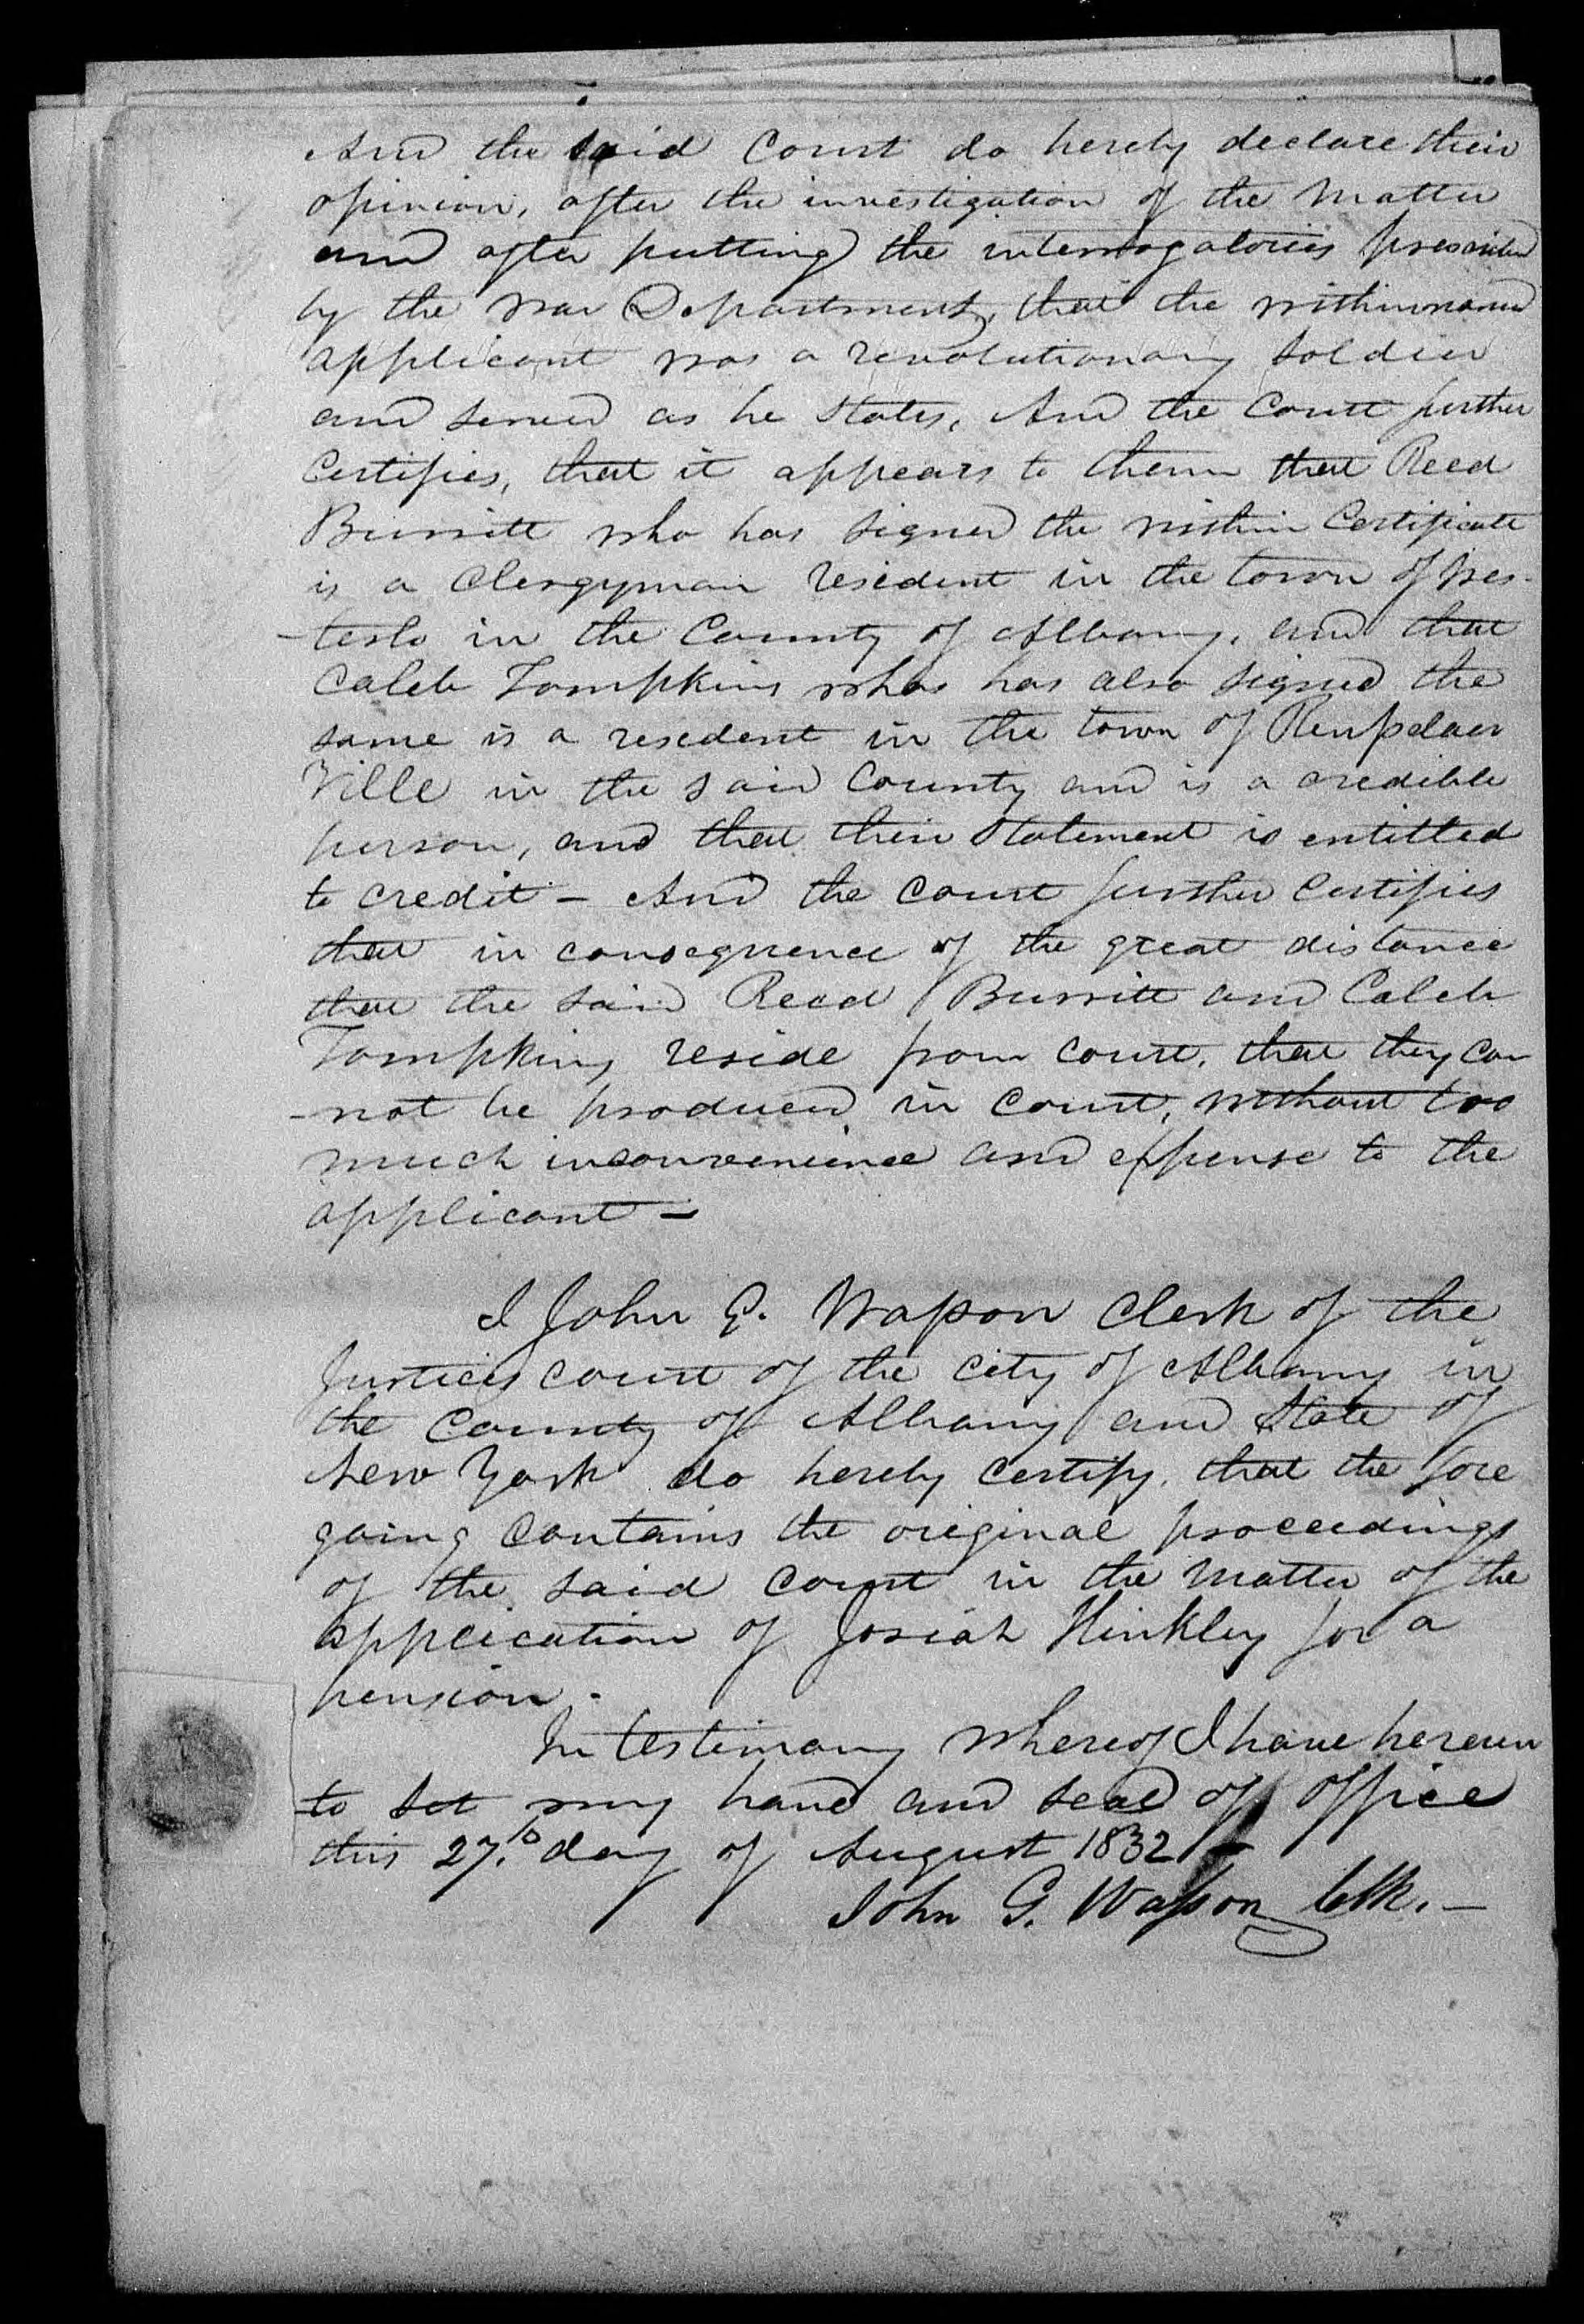 And the said Court do hereby declare their
opinion, after the investigation of the Matter
and after putting the interrogatories prescribed
by the War Department, that the within named
applicant was a revolutionary Soldier
and served as he States, And the Court further
Certifies, that it appears to them that Reed
Burritt who has signed the within Certificate
is a Clergyman resident in the town of Wes-
-terlo in the County of Albany, and that
Caleb Tompkins who has also signed the
same is a resedent in the town of Rensselaer
Ville in the said County and is a credible
person, and that their Statement is entitled
to credit - And the Court further Certifies
that in consequence of the great distance
that the said Reed Burritt and Caleb
Tompkins reside from Court, that they can
-not be produced in Court, without too
much inconvenience and expense to the
applicant -
I John G. Wasson Clerk of the
Justices court of the city of Albany in
the County of Albany and State of
New York do hereby certify, that the fore
going Contains the original proceedings
of the said Court in the Matter of the
application of Josiah Hinkley for a
pension.
In testimony whereof I have hereun
to set my hand and seal of office
this 27th day of August 1832 -
John G. Wasson Clk. -